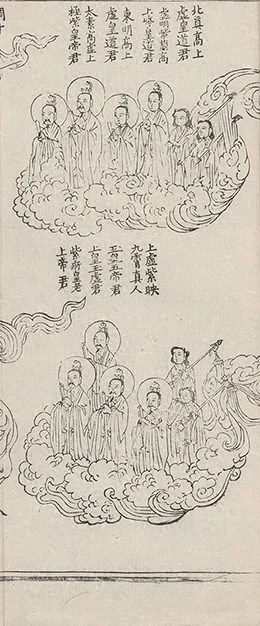 北真高上
虛皇道君
虛明紫蘭高
上皇道君
東明高上
虛皇道君
太素高虛上
極紫皇帝君
上虛紫映
九霄真人
皇帝君
上皇玉虛君
紫府皇老
上帝君